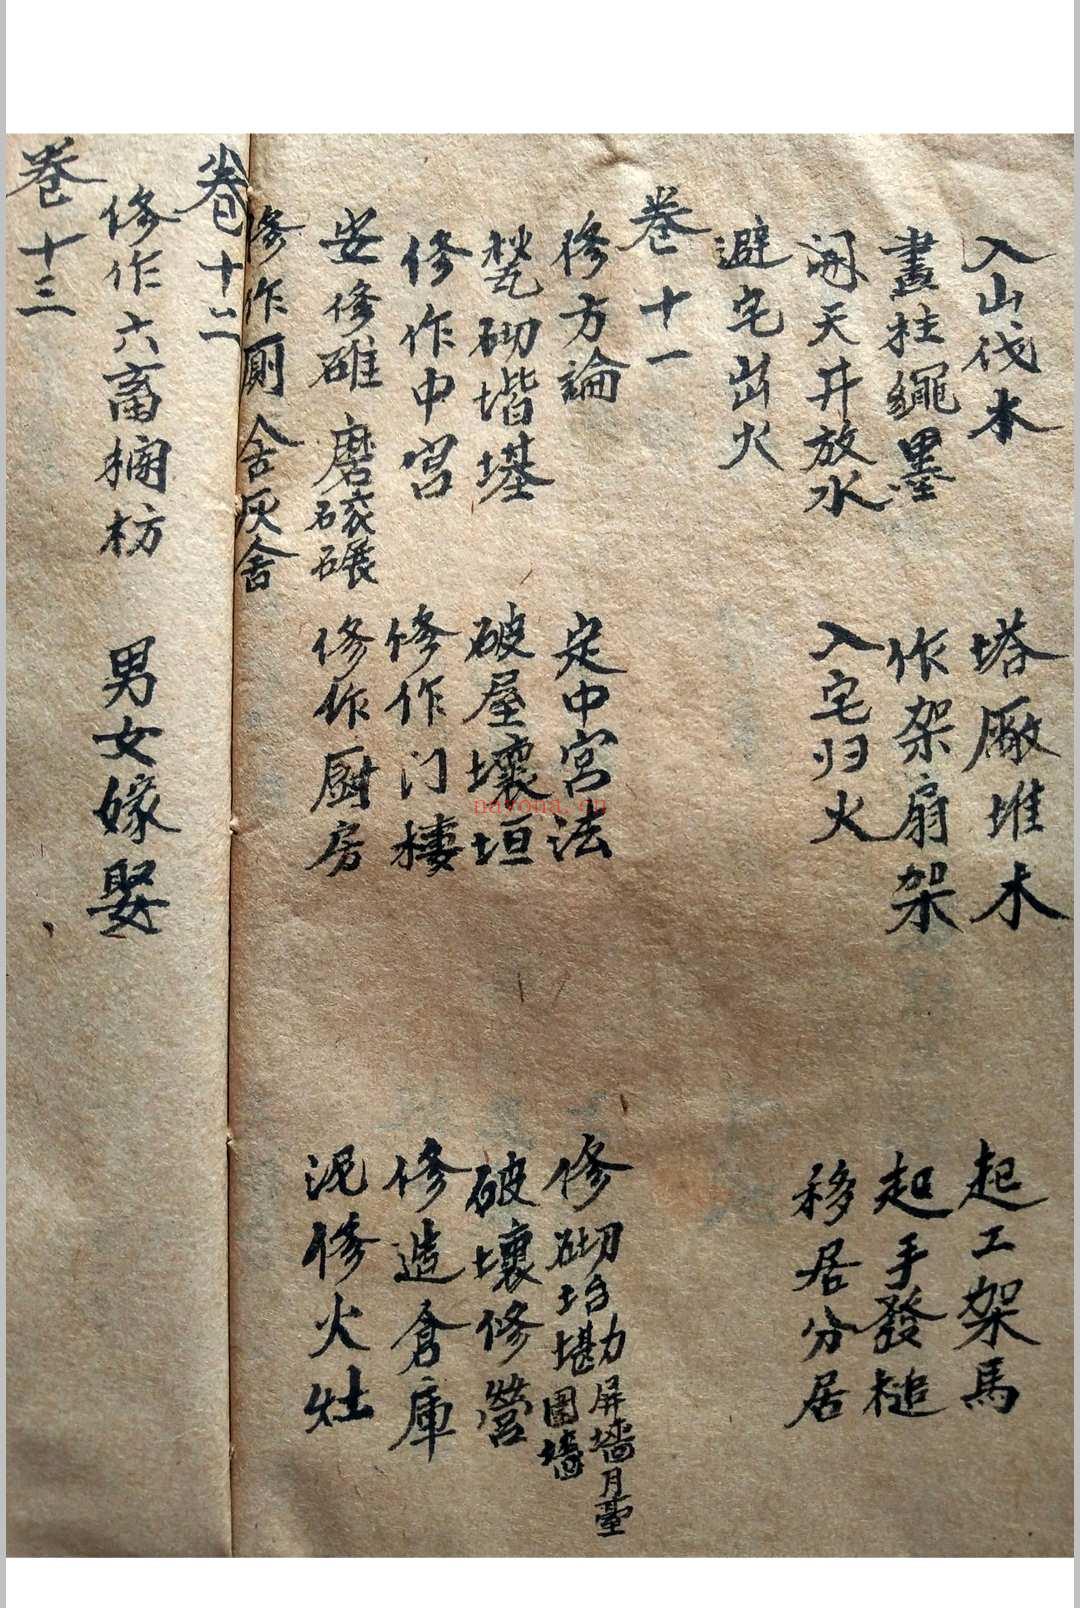 入山伐木 塔廠堆木 起工架馬
畫柱繩墨 作架扇架 起手發槌
開天井放水 入宅归火 移居分居
避宅出火
卷十一
修方論 定中宮法 修砌坮墈屏墻月臺圍墻
甃砌堦基 破屋壞垣 破壞修營
修作中宮 修作门樓 修造倉庫
安修碓磨磙碾 修作厨房 泥修火灶
修作厠舍灰舍
卷十二
修作六畜欄枋 男女嫁娶
卷十三
nayona.cn